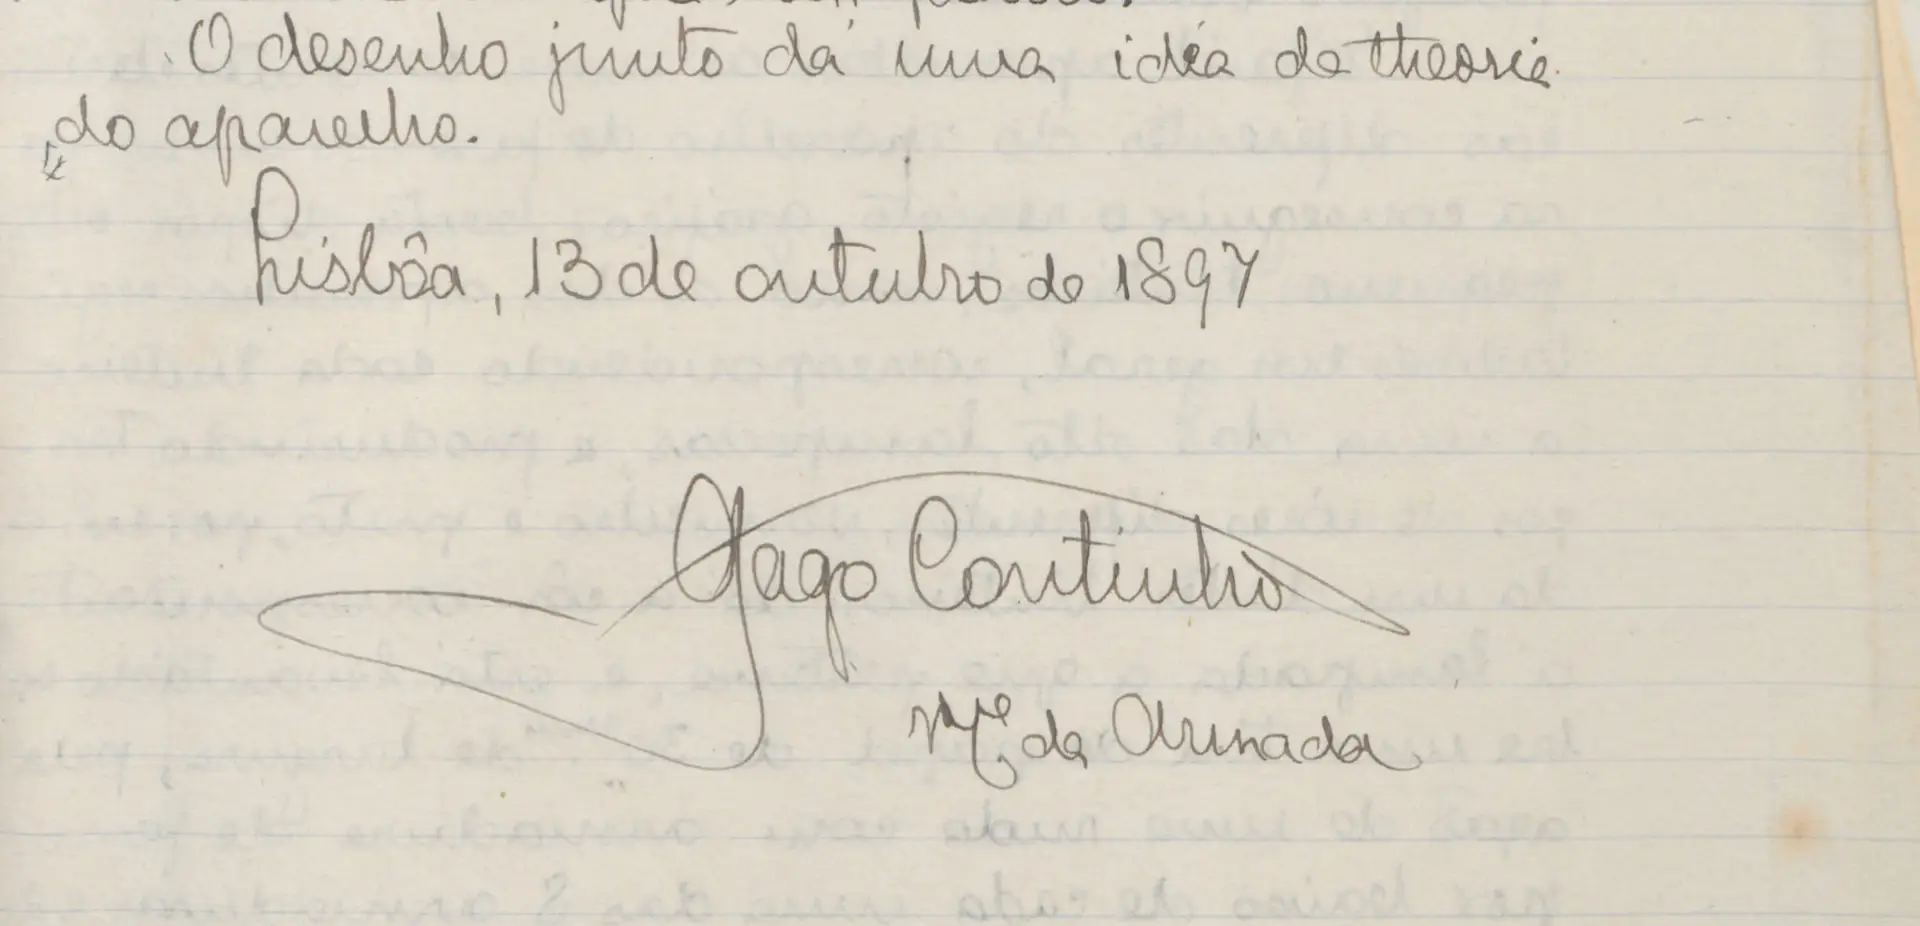 O desenho junto dá uma idéa da theoria
do aparelho.
Lisbôa, 13 de outubro de 1897
Gago Coutinho
da Armada